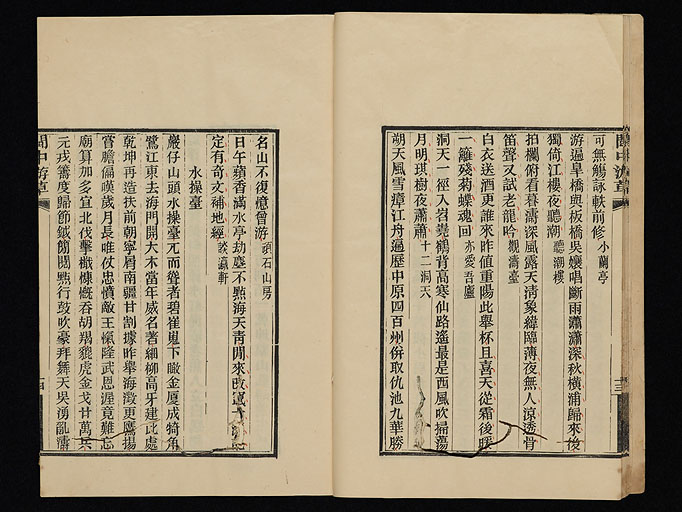 閩中游草
可無觴詠軼前修 小蘭亭
游遍皋橋與板橋吳孃唱斷雨瀟瀟深秋橫浦歸來後
獨倚江樓夜聽潮 聽潮樓
拍欄俯看暮濤深風露天清象緯臨薄夜無人涼透骨
笛聲又試老龍吟 觀濤臺
白衣送酒更誰來昨值重陽此舉杯且喜天從霜後暖
一籬殘菊蝶魂回 亦愛吾廬
洞天一徑入岩嶤鶴背高寒仙路遙最是西風吹掃蕩
月明琪樹夜蕭蕭 十二洞天
朔天風雪瘴江舟遍歷中原四百州併取仇池九華勝
十三
名山不復憶曾游 頑石山房
日午蘋香滿水亭劫塵不點海天青閒來
定有奇文補地經 談瀛軒
水操臺
巖仔山頭水操臺兀而聳者碧崔嵬下瞰金廈成犄角
鷺江東去海門開大木當年威名著細柳高牙建此處
乾坤再造扶前朝寧屑南疆甘割據昨舉海澂更鷹揚
嘗膽偏嘆歲月長唯仗忠憤敵王愾隆武恩渥竟難忘
廟算加多宜北伐擊檝慷慨吞胡羯貔虎金戈廿萬兵
元戎籌度歸節鉞簡閱點行鼓吹豪拜舞天吳湧亂濤
閩中游草
十四